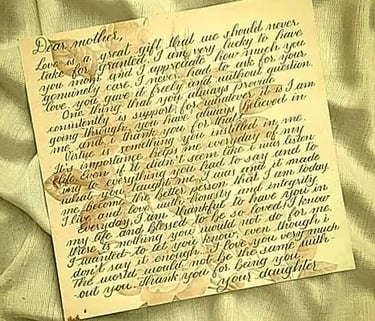 Dear mother,
Love is a great gift that we should never
take for granted. I am very lucky to have
you mom and I appreciate how much you
genuinely care. I never had to ask for your
love you gave it freely and without question.
One thing that you always provide
consistently is support for whatever it is I am
going through, you have always believed in
me, and I thank you for that.
Virtue is something you instilled in me.
It's importance helps me everyday of my
life. Even if it didn't seem like I was listen
ing to everything you had to say and to
what you taught me I was and it made
me become a better person that I am today.
I live and love with honor and integrity.
Everyday I am thankful to have you in
my life and blessed to be so loved. I know
there is nothing you would not do for me.
I wanted to let you know even though I
don't say it enough. I love you very much
The world would not be the same with-
out you. Thank you for being you.
Your daughter